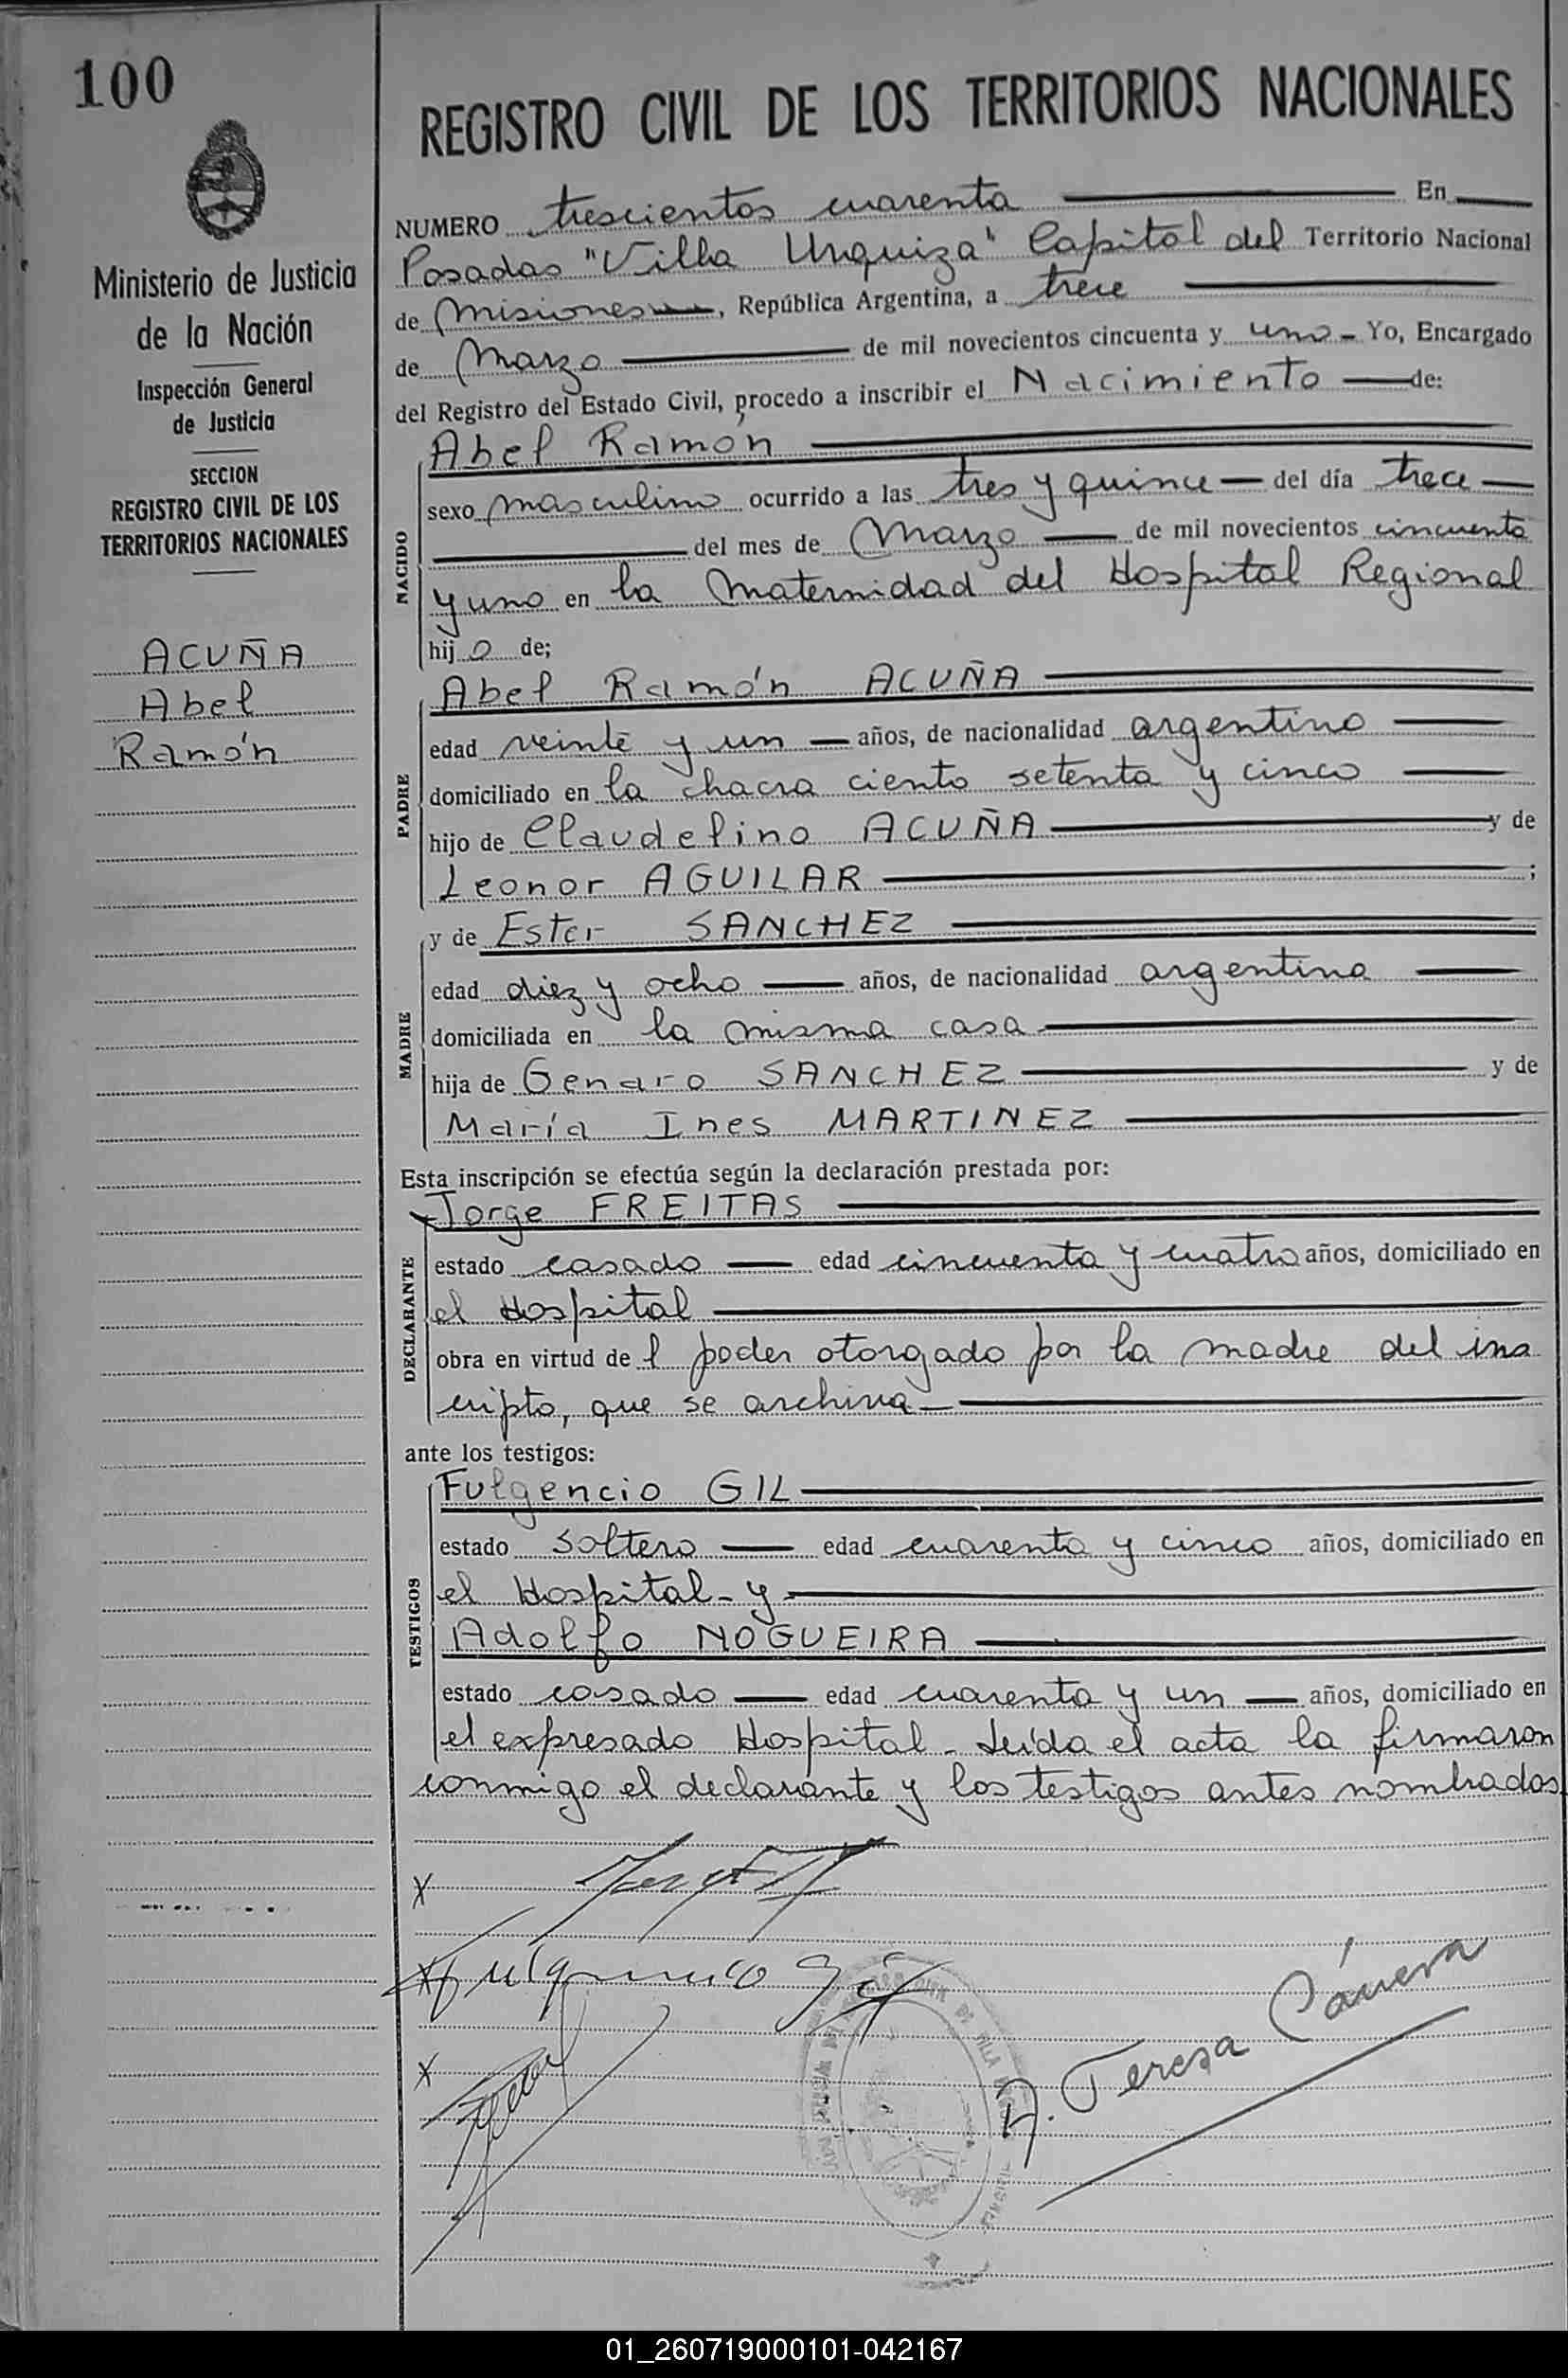 100
Ministerio de Justicia
de la Nación
Inspección General
de Justicia
SECCION
REGISTRO CIVIL DE LOS
TERRITORIOS NACIONALES
ACUÑA
Abel
Ramón
REGISTRO CIVIL DE LOS TERRITORIOS NACIONALES
NUMERO trescientos cuarenta En
Posadas "Villa Urquiza" Capital del Territorio Nacional
de Misiones, República Argentina, a trece
de Marzo de mil novecientos cincuenta y uno - Yo, Encargado
del Registro del Estado Civil, procedo a inscribir el Nacimiento de:
NACIDO
Abel Ramón
sexo masculino ocurrido a las tres y quince del día trece
del mes de Marzo de mil novecientos cincuenta
y uno en la Maternidad del Hospital Regional
hijo de;
PADRE
Abel Ramón ACUÑA
edad veinte y un años, de nacionalidad argentino
domiciliado en la chacra ciento setenta y cinco
hijo de Claudelino ACUÑA y de
Leonor AGUILAR ;
MADRE
y de Ester SANCHEZ
edad diez y ocho años, de nacionalidad argentina
domiciliada en la misma casa
hija de Genaro SANCHEZ y de
María Ines MARTINEZ
Esta inscripción se efectúa según la declaración prestada por:
DECLARANTE
Jorge FREITAS
estado casado edad cincuenta y cuatro años, domiciliado en
el Hospital
obra en virtud de l poder otorgado por la madre del ins
cripto, que se archiva
ante los testigos:
TESTIGOS
Fulgencio GIL
estado soltero edad cuarenta y cinco años, domiciliado en
el Hospital - y
Adolfo NOGUEIRA
estado casado edad cuarenta y un años, domiciliado en
el expresado Hospital - Leída el acta la firmaron
conmigo el declarante y los testigos antes nombrados
x
x Fulgencio Gil
x
A. Teresa
01_260719000101-042167